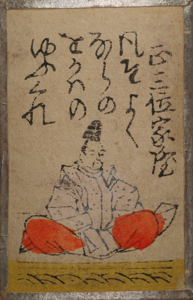 正三位家隆
風そよく
ならの
をかはの
ゆふくれ